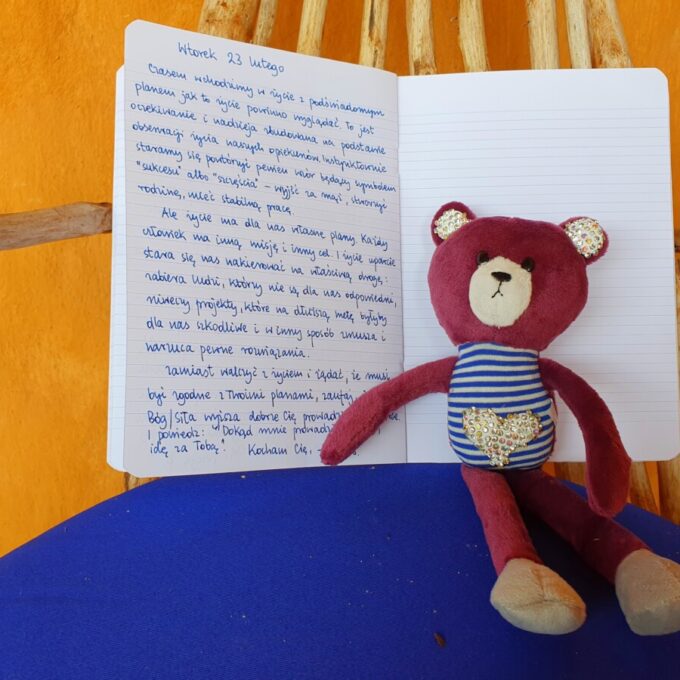 Wtorek 23 lutego
Czasem wchodzimy w życie z podświadomym
planem jak to życie powinno wyglądać. To jest
oczekiwanie i nadzieja zbudowana na podstawie
obserwacji życia naszych opiekunów. Instynktownie
staramy się powtórzyć pewien wzór będący symbolem
"sukcesu" albo "szczęścia" - wyjść za mąż, stworzyć
rodzinę, mieć stabilną pracę.
Ale życie ma dla nas własne plany. Każdy
człowiek ma inną misję i inny cel. I życie uparcie
stara się nas nakierować na właściwą drogę:
zabiera ludzi, którzy nie są dla nas odpowiedni,
niweczy projekty, które na dłuższą metę byłyby
dla nas szkodliwe i w inny sposób zmusza i
narzuca pewne rozwiązania.
Zamiast walczyć z życiem i żądać, że musi
być zgodne z Twoimi planami, zaufaj
Bóg/Siła wyższa dobrze Cię prowadzi
I powiedz: "Dokąd mnie prowadzi
idę za Tobą". Kocham Cię,